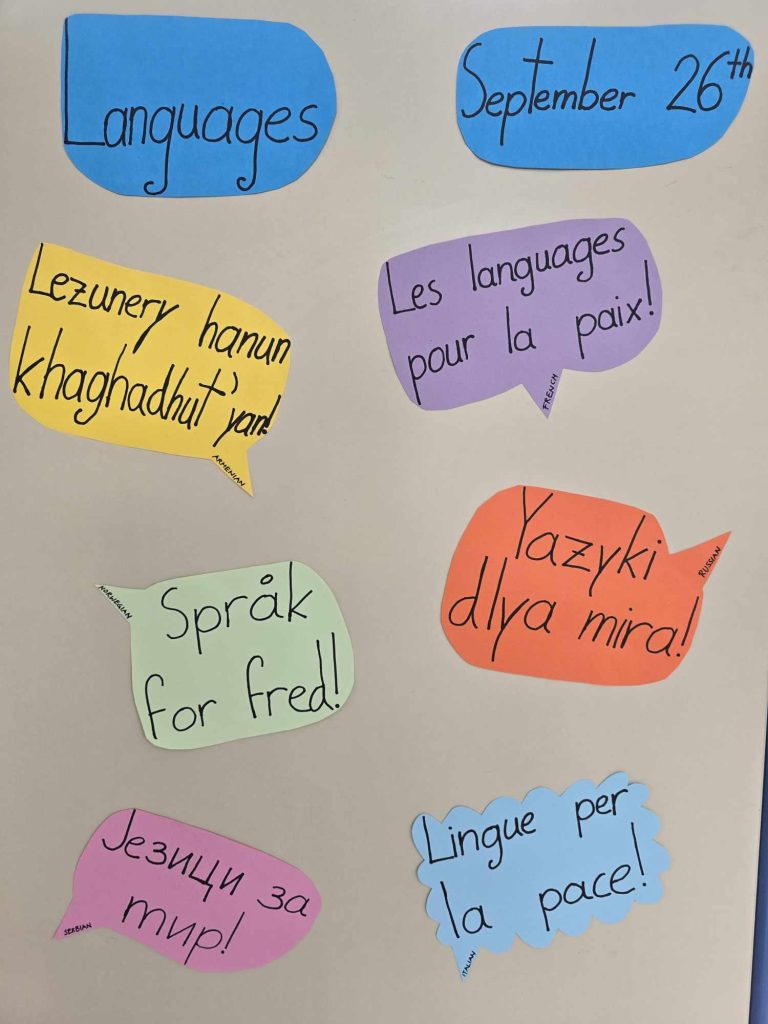 Languages
September 26th
Lezunery hanun
khaghadhut'yan!
ARMENIAN
Les languages
pour la paix!
FRENCH
NORWEGIAN
Språk
for fred!
Yazyki
dlya mira!
RUSSIAN
Језици за
мир!
SERBIAN
Lingue per
la pace!
ITALIAN